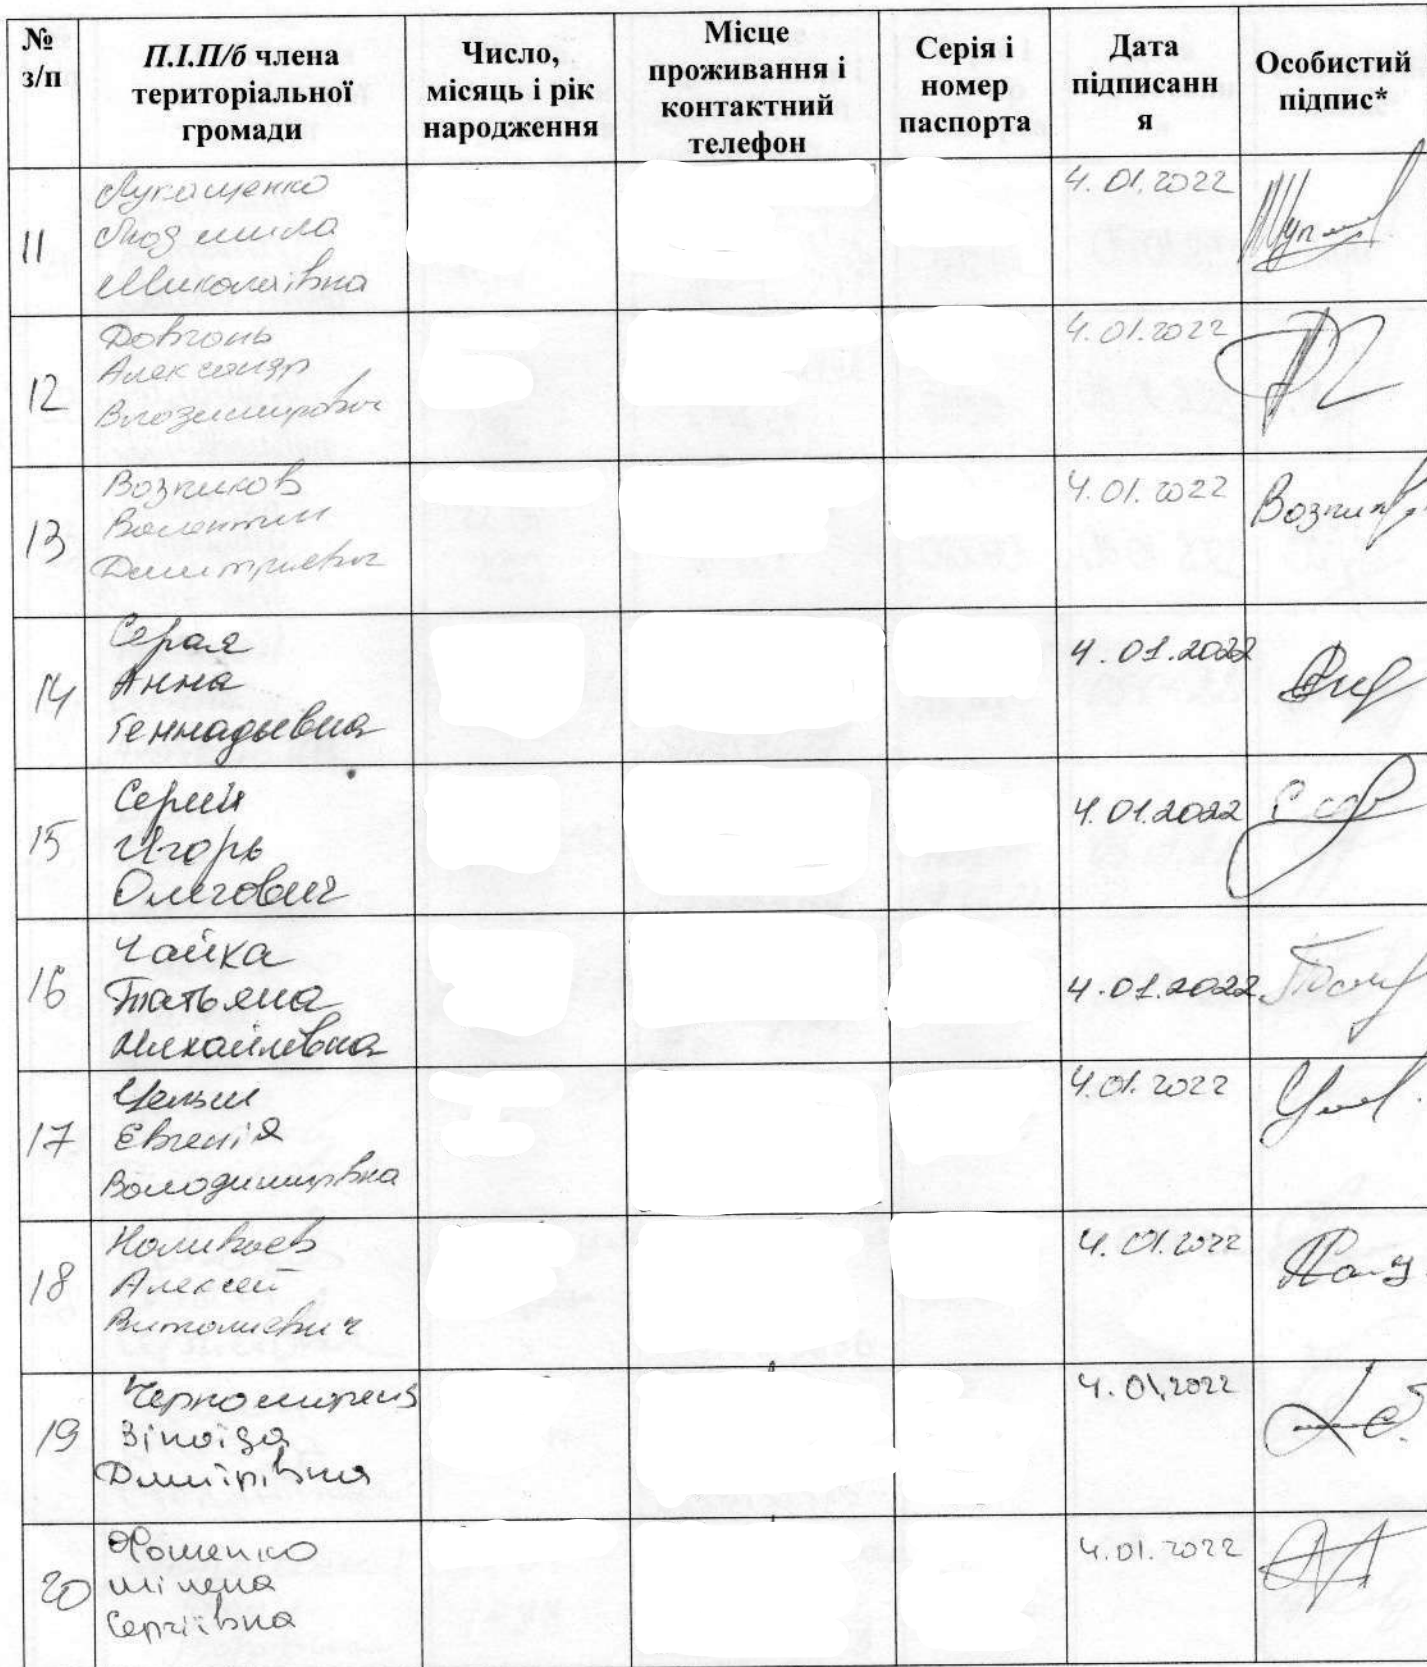 № з/п
П.І.П/б члена територіальної громади
Число, місяць і рік народження
Місце проживання і контактний телефон
Серія і номер паспорта
Дата підписанн я
Особистий підпис*
11
Лукащенко
Людмила
Миколаївна
4.01.2022
12
Довгонь
Александр
Владимирович
4.01.2022
13
Возников
Валентин
Дмитриевич
4.01.2022
14
Серая
Анна
Геннадьевна
4.01.2022
15
Серый
Игорь
Олегович
4.01.2022
16
Чайка
Татьяна
Михайлевна
4.01.2022
17
Євгенія
Володимирівна
4.01.2022
18
Аликсей
Витальевич
4.01.2022
19
Черноморец
Зіноїда
Дмитрівна
4.01.2022
20
Мілена
Сергіївна
4.01.2022